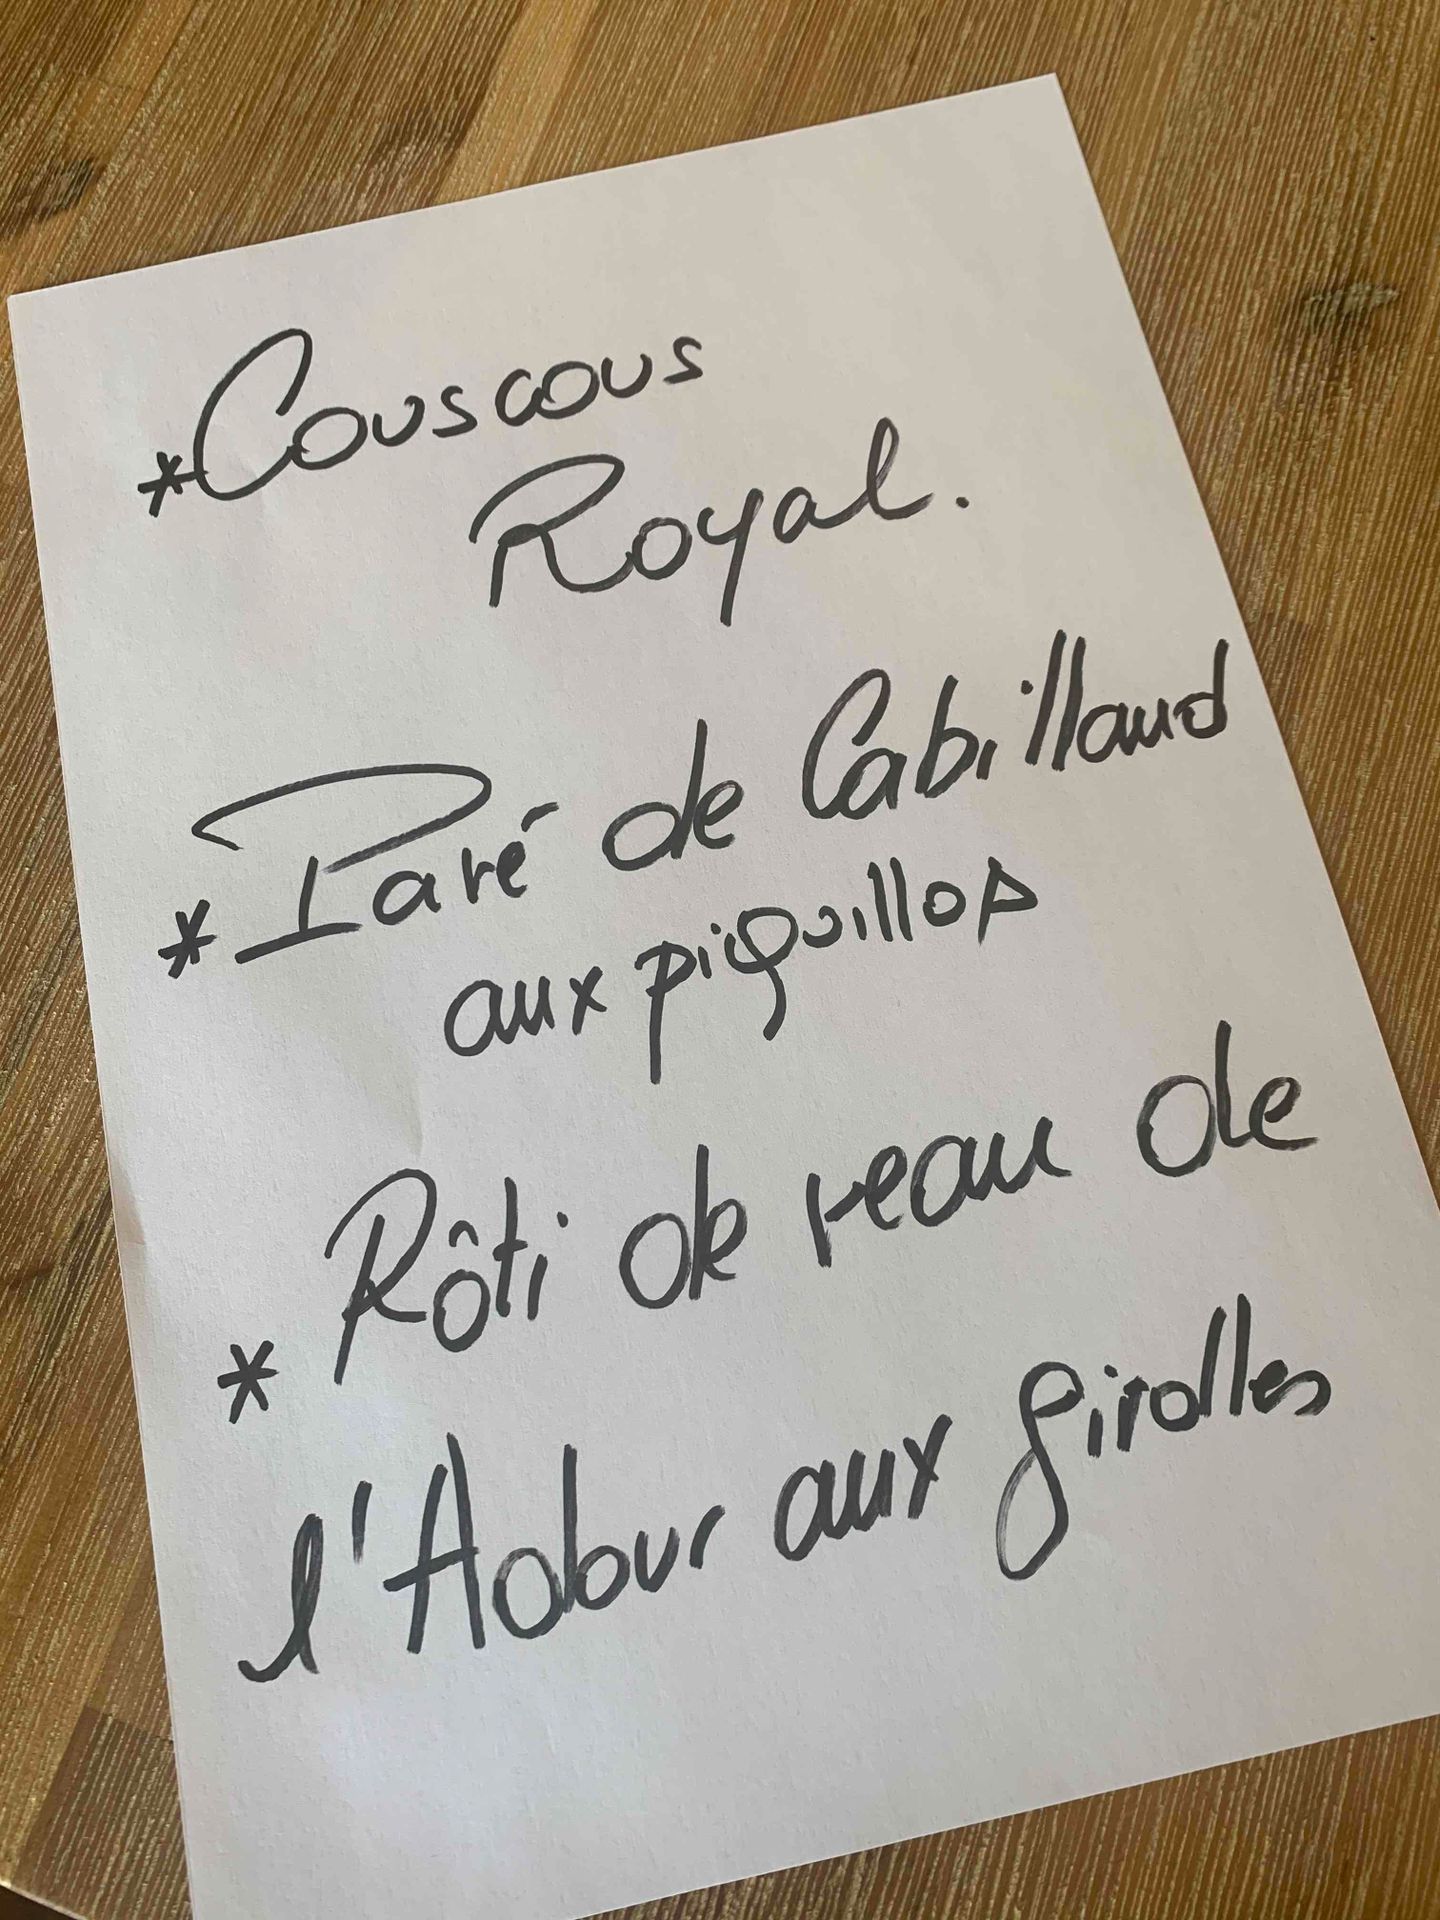 *Couscous
Royal.
* Pavé de Cabillaud
aux piquillos
* Rôti de veau de
l'Adour aux girolles